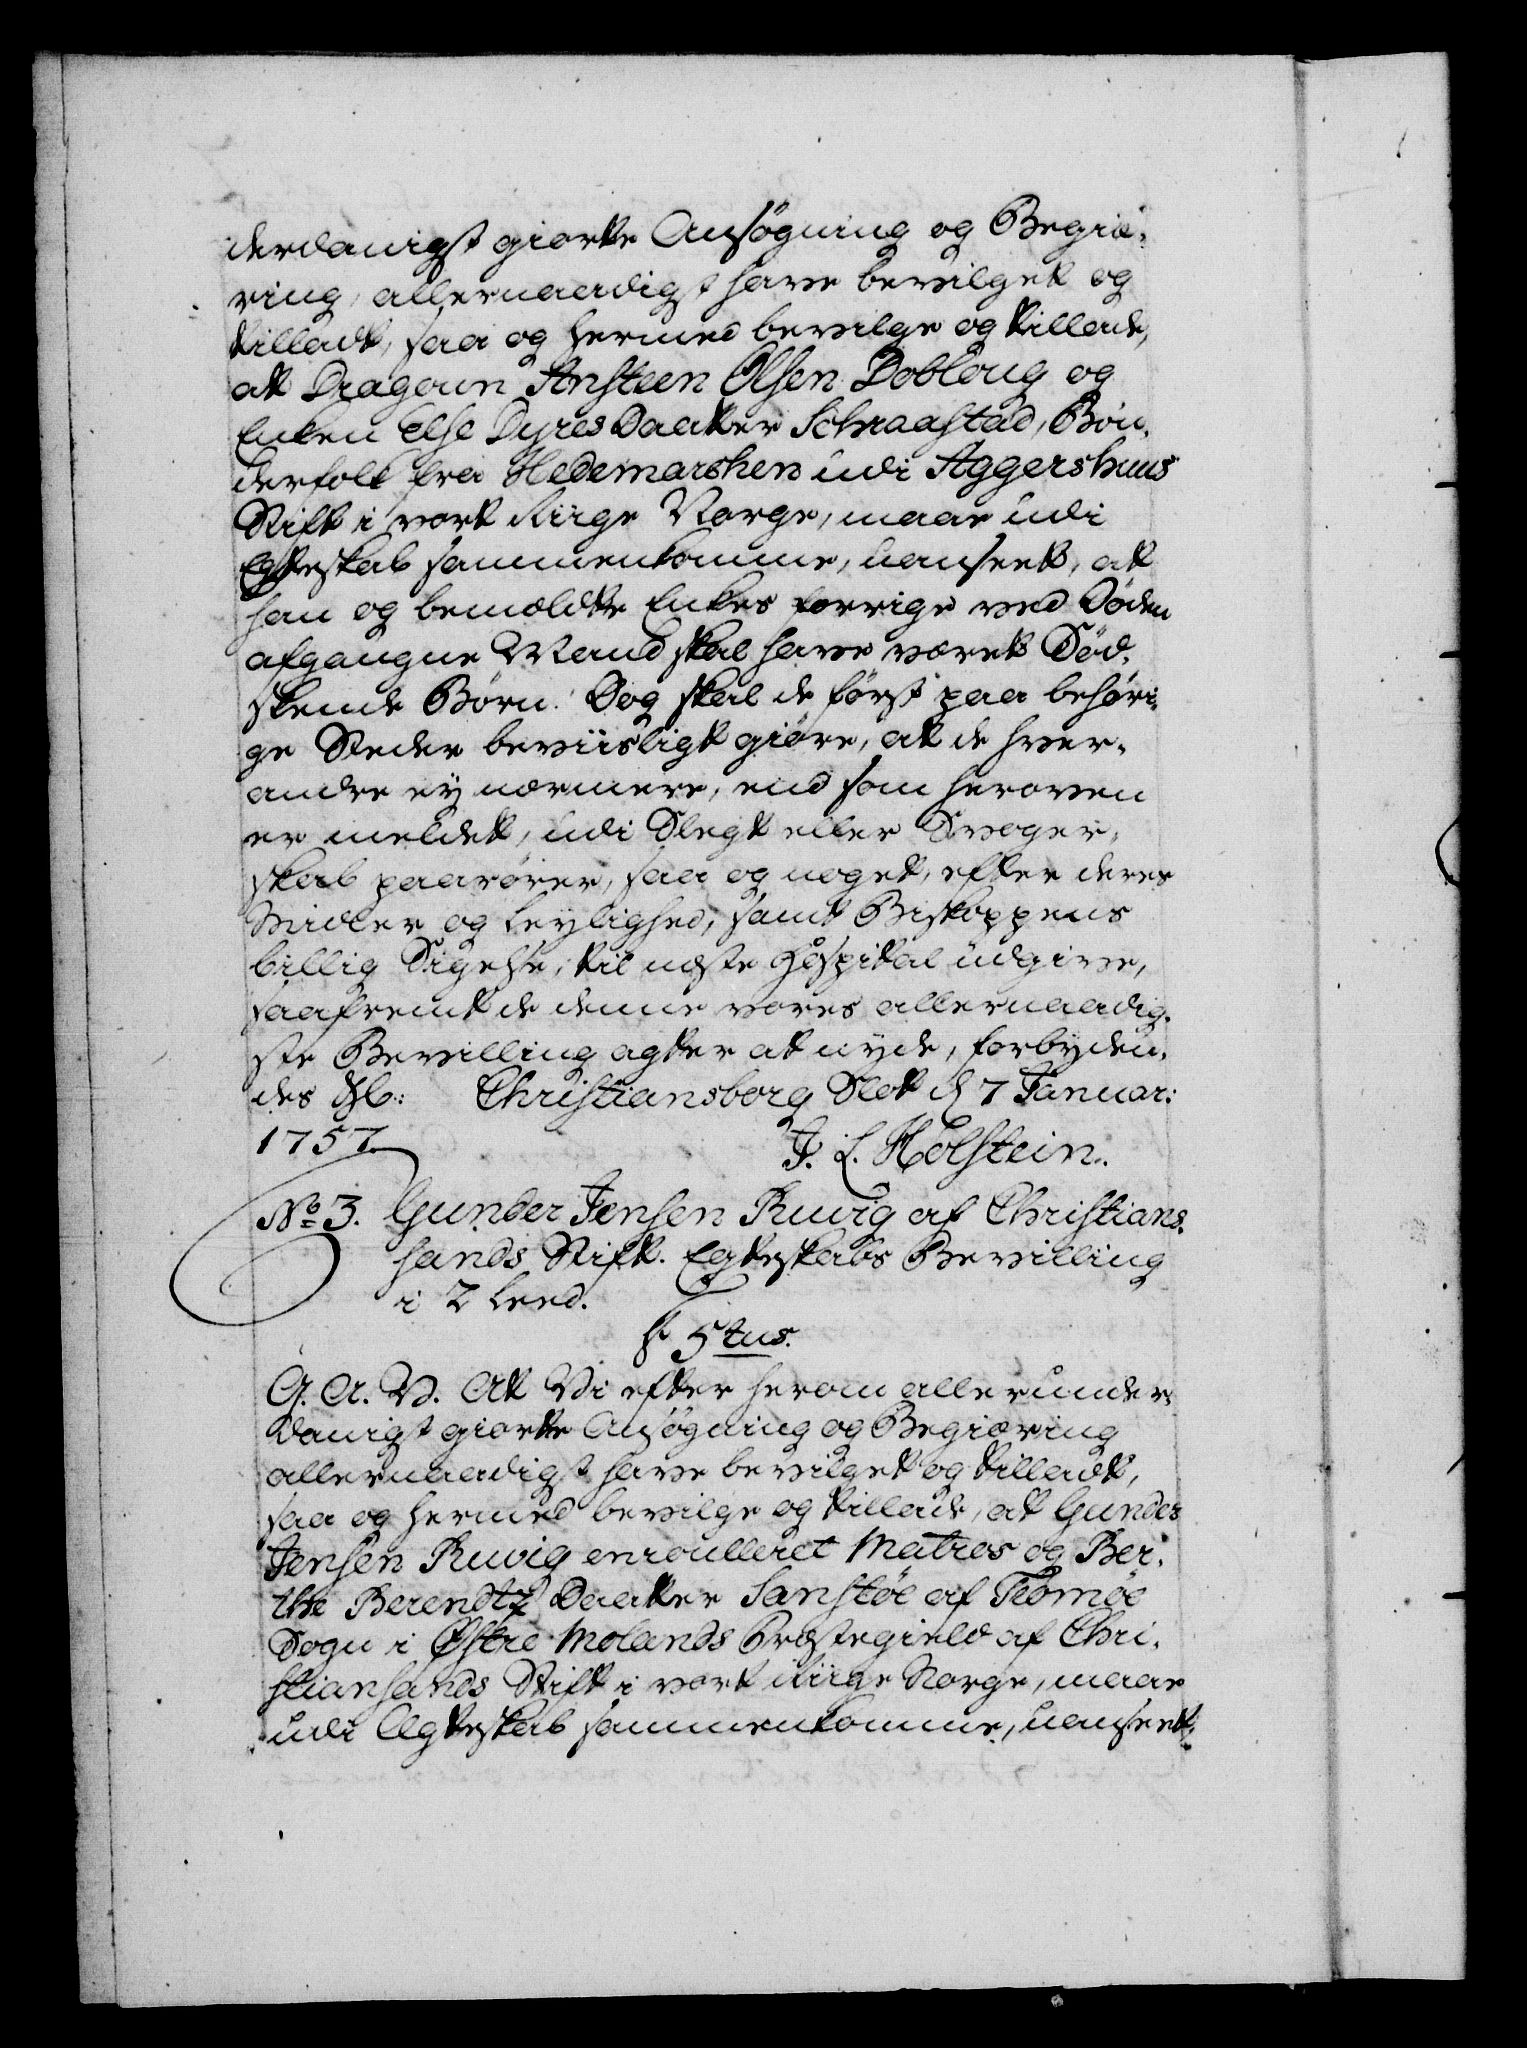 derdanigst giorte Ansøgning og Begiæ-
ring, allernaadigst have bevilget og
tilladt, saa og hermed bevilge og tillade,
at Dragoun Ansteen Olsen Dobloug og
Enken Else Dyres Daatter Schraastad, Bøn-
derfolk fra Hedemarshen udi Aggershuus
Stift i vort Riige Norge, maae udi
Egteskab sammenkomme, uanseet, at
han og bemeldte Enkes forrige ved Døden
afgangne Mand skal have været Sød-
skende Børn. Dog skal de først paa behøri-
ge Steder beviisligt giøre, at de hver-
andre ey nærmere, end som heroven
er meldet, udi Slegt eller Svoger-
skab paarører, saa og noget, efter deres
Midler og Leylighed, samt Biskoppens
billig Sigelse, til næste Hospital udgive,
saafremt de denne vores allernaadig-
ste Bevilling agter at nyde, forbyden-
des &c: Christiansborg Slot d 7 Januar:
1757. J. L. Holstein.
No 3. Gunder Jensen Ruvig af Christians-
sands Stift. Egteskabs Bevilling
i 2 Leed.
§ 5tus.
G. A. V. At Vi efter herom allerunder-
danigst giorte Ansøgning og Begiæring
allernaadigst have bevilget og tilladt,
saa og hermed bevilge og tillade, at Gunder
Jensen Ruvig enroulleret Matros og Ber-
the Berendtz Daatter Sanstøe af Tromøe
Sogn i Østre Molands Præstegield af Chri-
stiansands Stift i vort Riige Norge, maae
udi Ægteskab sammenkomme, uanseet,